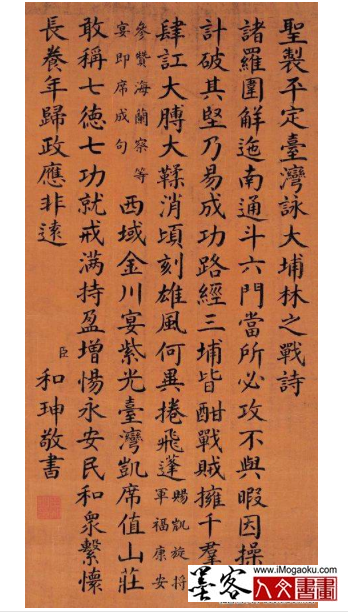 聖製平定臺灣詠大埔林之戰詩
諸羅圍解迤南通斗六門當所必攻不與暇因操
計破其堅乃易成功路經三埔皆酣戰賊擁千羣
肆訌大膊大鞣消頃刻雄風何異捲飛蓬賜凱旋將軍福康安
參贊海蘭察等宴即席成句西域金川宴紫光臺灣凱席值山莊
敢稱七德七功就戒滿持盈增惕永安民和衆繫懷
長養年歸政應非遠
臣和珅敬書
www.iMogaoku.com
墨客
人文書畫